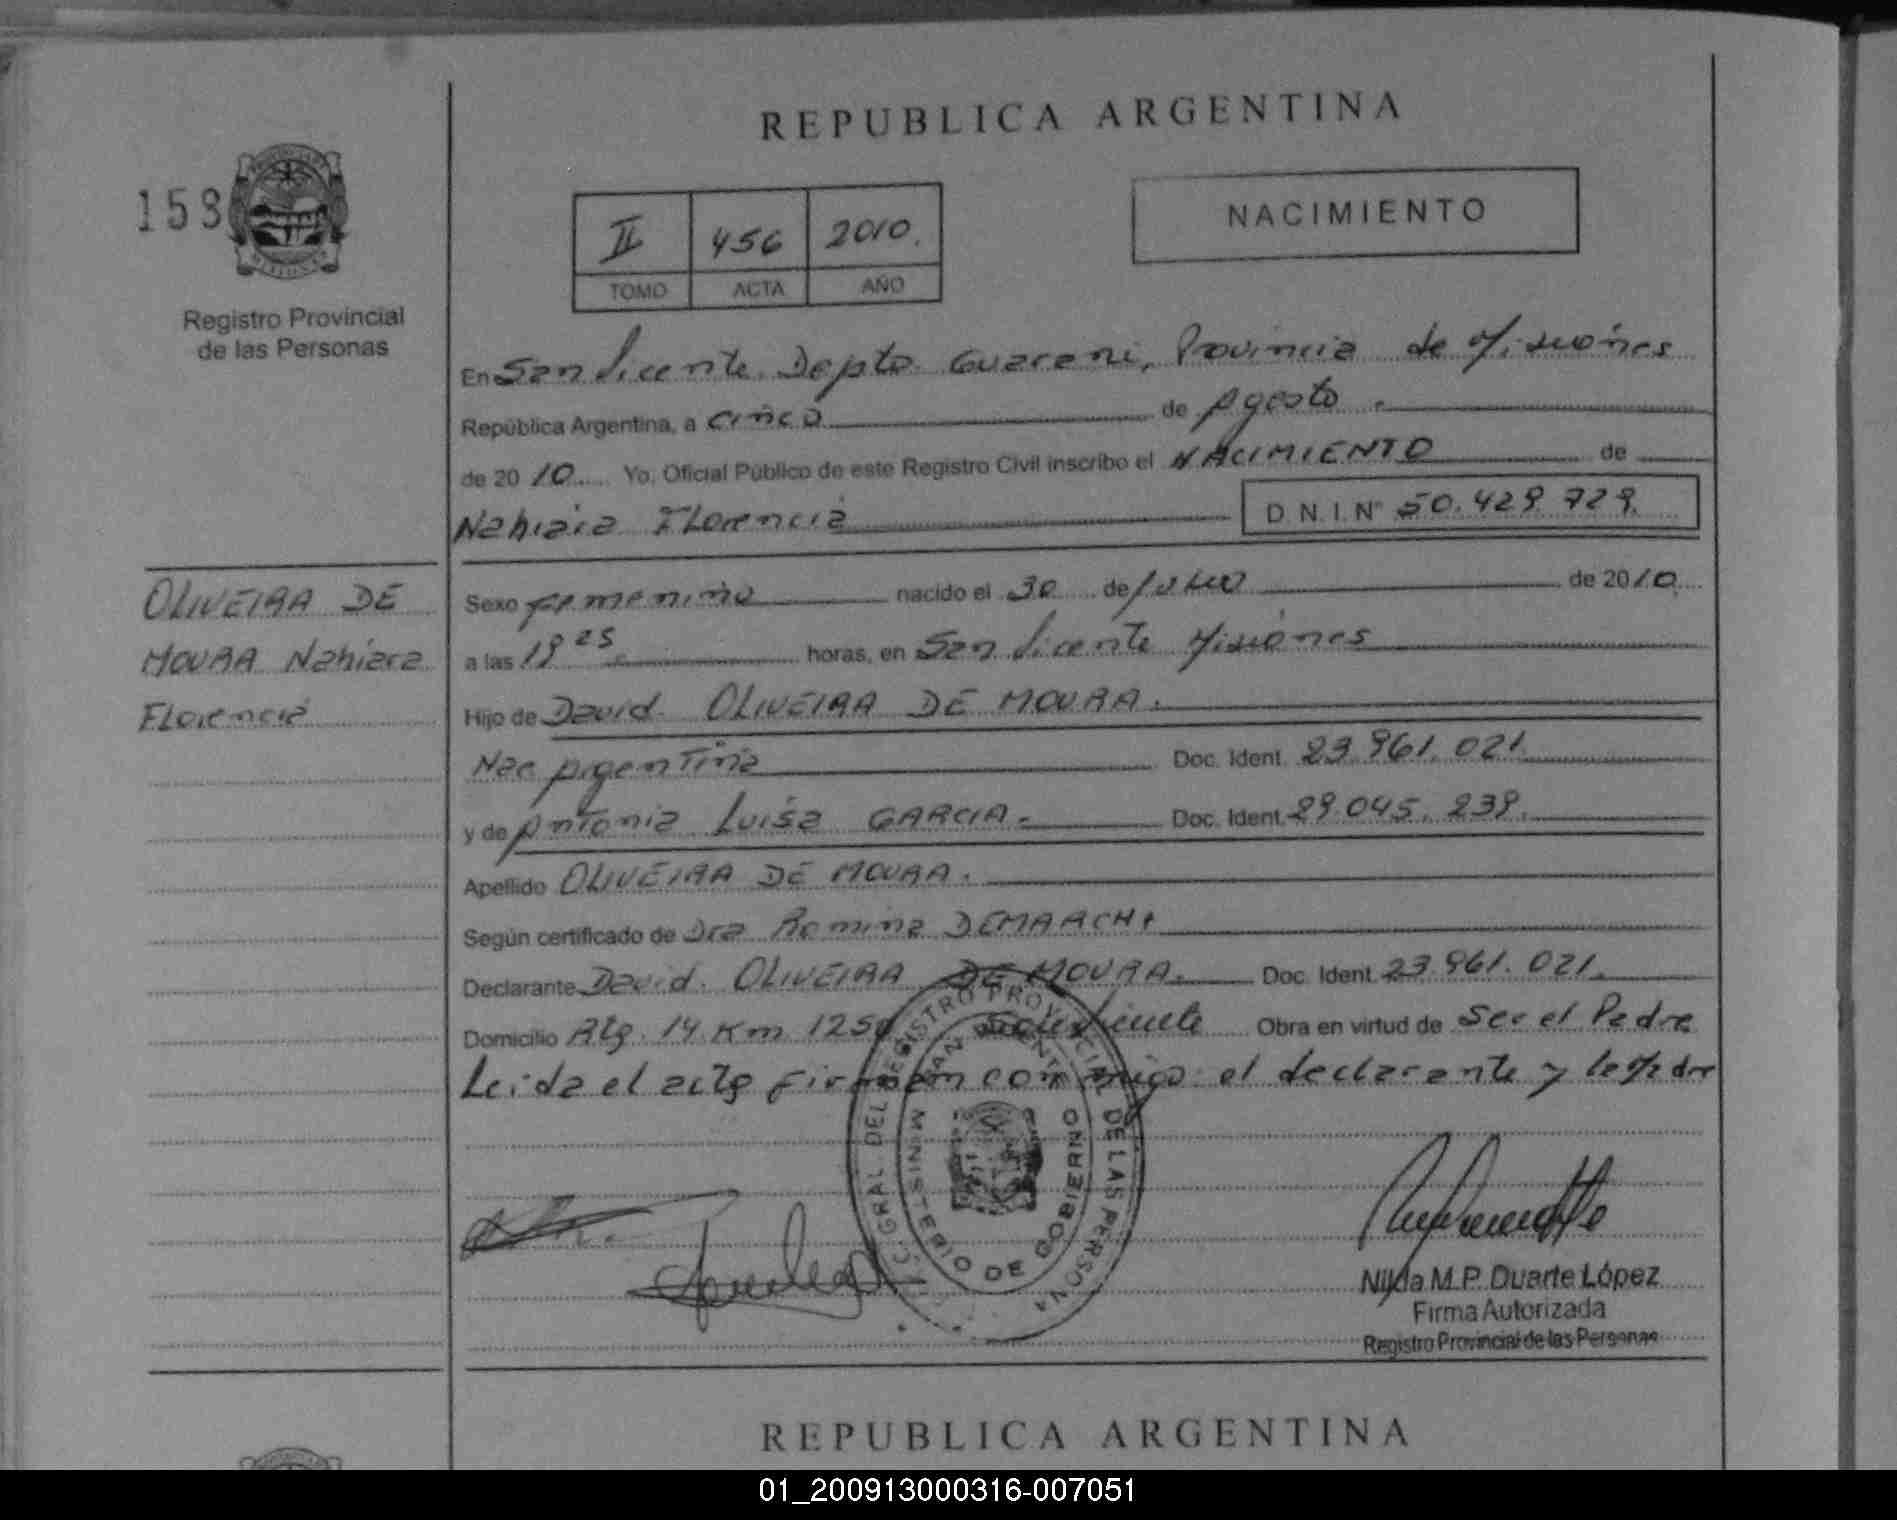 REPUBLICA ARGENTINA
158
Registro Provincial
de las Personas
II 456 2010.
TOMO ACTA AÑO
NACIMIENTO
En San Vicente Depto. Guarani, Provincia de Misiones
República Argentina, a cinco de Agosto.
de 2010 Yo, Oficial Público de este Registro Civil inscribo el NACIMIENTO de
Nahiara Florencia D.N.I.Nº 50.429.729.
OLIVEIRA DE
MOURA Nahiara
Florencia
Sexo femenino nacido el 30 de Julio de 2010.
a las 19 25. horas, en San Vicente Misiones
Hijo de David OLIVEIRA DE MOURA.
Nac Argentina Doc. Ident. 23.961.021.
y de Antonia Luisa GARCIA. Doc. Ident. 29.045.239.
Apellido OLIVEIRA DE MOURA.
Según certificado de Dra Romina DEMARCHI
Declarante David. OLIVEIRA DE MOURA. Doc. Ident. 23.961.021.
Domicilio Rtg. 14 Km 1250 San Vicente Obra en virtud de Ser el Padre
Leida el acta firman conmigo el declarante y la Madre
GRAL DEL REGISTRO PROVINCIAL DE LAS PERSONAS
SAN VICENTE
MINISTERIO DE GOBIERNO
Nilda M.P. Duarte López
Firma Autorizada
Registro Provincial de las Personas
REPUBLICA ARGENTINA
01_200913000316-007051